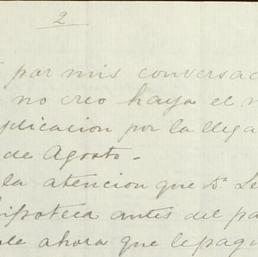 2
por mis conversac
no creo haya el m
plicacion por la llega
de Agosto.-
la atencion que Dn. Le
hipoteca antes del pa
ale ahora que le pagu